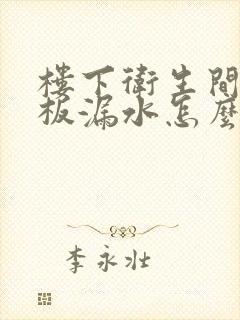 樓下衛生間
板漏水怎麼
李永壯